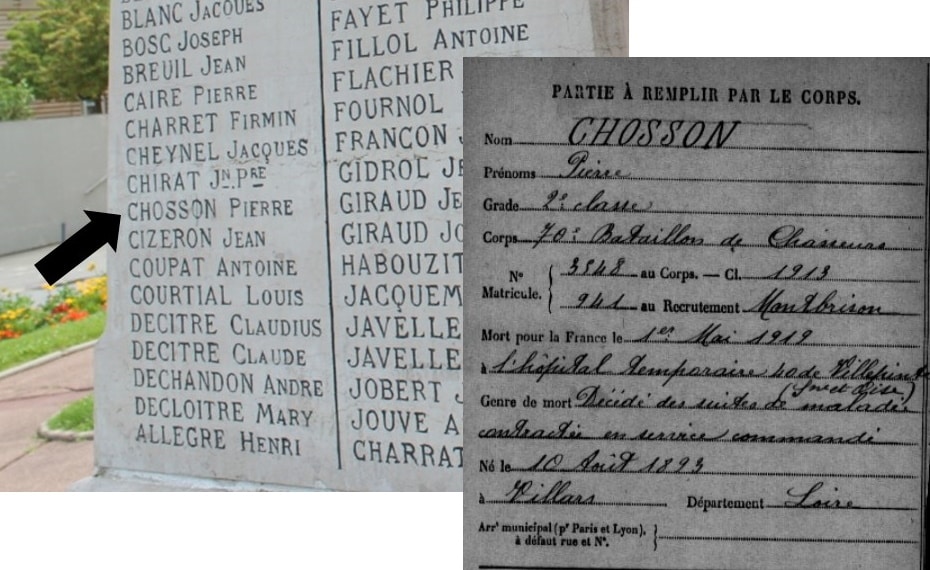 BLANC JACQUES
BOSC JOSEPH
BREUIL JEAN
CAIRE PIERRE
CHARRET FIRMIN
CHEYNEL JACQUES
CHIRAT JN. PRE
CHOSSON PIERRE
CIZERON JEAN
COUPAT ANTOINE
COURTIAL LOUIS
DECITRE CLAUDIUS
DECITRE CLAUDE
DECHANDON ANDRE
DECLOITRE MARY
ALLEGRE HENRI
FAYET PHILIPPE
FILLOL ANTOINE
FLACHIER
FOURNOL
FRANCON J
GIDROL JE
GIRAUD JE
GIRAUD JO
HABOUZIT
JACQUEM
JAVELLE
JAVELLE
JOBERT J
JOUVE A
CHARRAT
PARTIE À REMPLIR PAR LE CORPS.
Nom CHOSSON
Prénoms Pierre
Grade 2e classe
Corps 70e Bataillon de Chasseurs
No Matricule. { 3548 au Corps. — Cl. 1913
941 au Recrutement Montbrison
Mort pour la France le 1er Mai 1919
à l'hôpital temporaire 40 de Villepinte
(Sne et Oise)
Genre de mort Décidé des suites de maladie
contractée en service commandé
Né le 10 Août 1893
à Villars Département Loire
Arrt municipal (pr Paris et Lyon), }
à défaut rue et No.